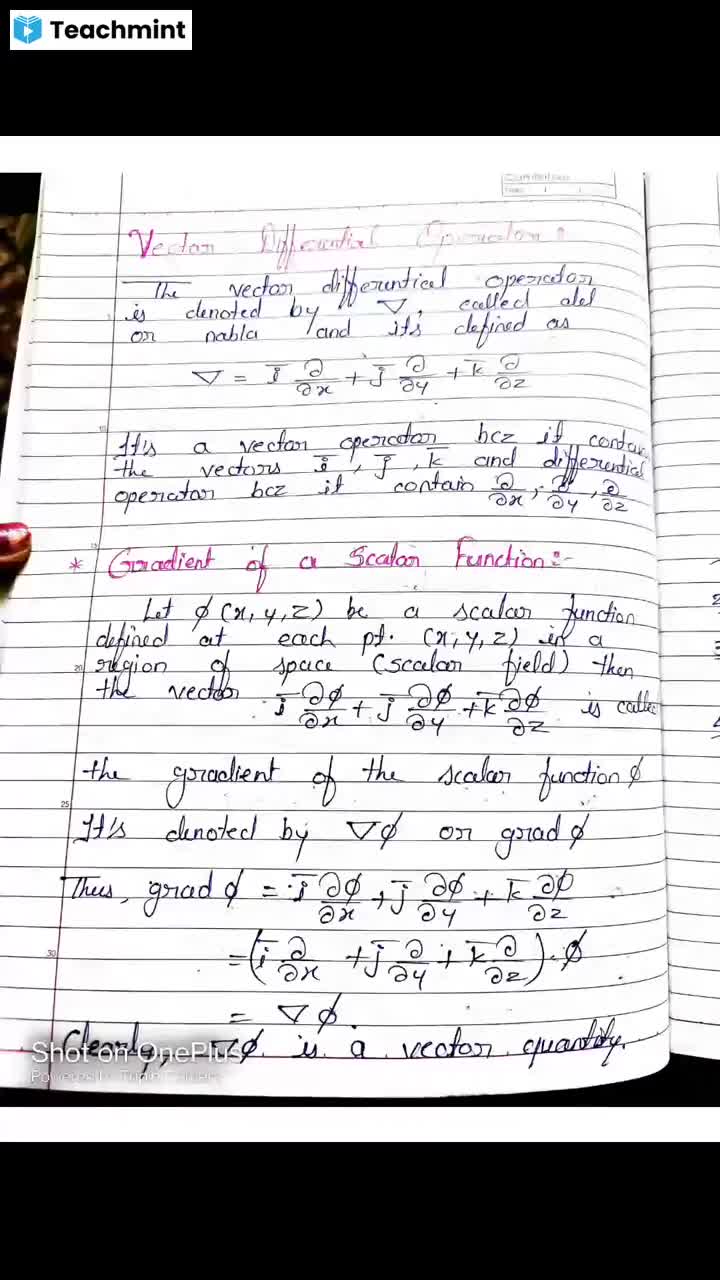 Teachmint
Vector Differential Operator :
The vector differential operator
is denoted by ∇, called del
or nabla and it's defined as
∇ = i̅ ∂/∂x + j̅ ∂/∂y + k̅ ∂/∂z
It's a vector operator bcz it contain
the vectors i̅, j̅, k̅ and differential
operator bcz it contain ∂/∂x, ∂/∂y, ∂/∂z
* Gradient of a Scalar Function :-
Let ϕ(x, y, z) be a scalar function
defined at each pt. (x, y, z) in a
region of space (scalar field) then
the vector i̅ ∂ϕ/∂x + j̅ ∂ϕ/∂y + k̅ ∂ϕ/∂z is calle
the gradient of the scalar function ϕ
It's denoted by ∇ϕ or grad ϕ
Thus, grad ϕ = i̅ ∂ϕ/∂x + j̅ ∂ϕ/∂y + k̅ ∂ϕ/∂z
= (i̅ ∂/∂x + j̅ ∂/∂y + k̅ ∂/∂z) · ϕ
= ∇ϕ.
Clearly, ∇ϕ is a vector quantity.
Shot on OnePlus